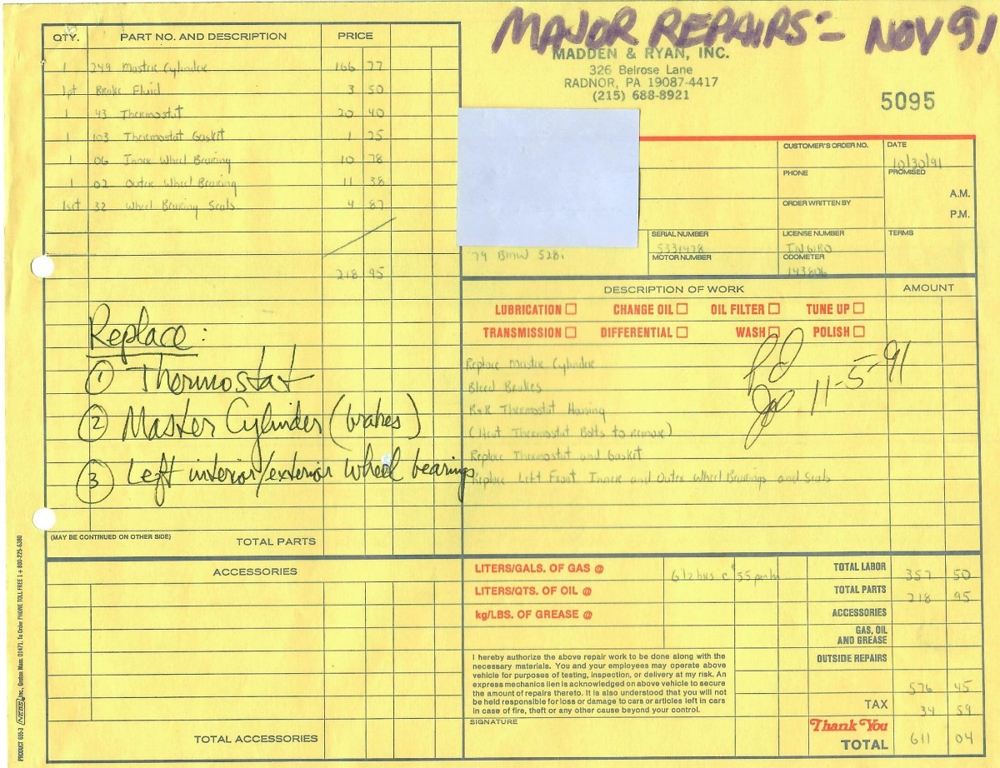 MAJOR REPAIRS:- NOV 91
MADDEN & RYAN, INC.
326 Belrose Lane
RADNOR, PA 19087-4417
(215) 688-8921
5095
QTY. PART NO. AND DESCRIPTION PRICE
1 249 Master Cylinder 166 77
1pt Brake Fluid 3 50
1 43 Thermostat 20 40
1 103 Thermostat Gasket 1 25
1 06 Inner Wheel Bearing 10 78
1 02 Outer Wheel Bearing 11 38
1set 32 Wheel Bearing Seals 4 87
218 95
Replace:
① Thermostat
② Master Cylinder (brakes)
③ Left interior/exterior wheel bearings
(MAY BE CONTINUED ON OTHER SIDE) TOTAL PARTS
ACCESSORIES
TOTAL ACCESSORIES
CUSTOMER'S ORDER NO. DATE
10/30/91
PHONE PROMISED
A.M.
ORDER WRITTEN BY
P.M.
SERIAL NUMBER LICENSE NUMBER TERMS
79 BMW 528i 5331478
MOTOR NUMBER ODOMETER
DESCRIPTION OF WORK AMOUNT
LUBRICATION CHANGE OIL OIL FILTER TUNE UP
TRANSMISSION DIFFERENTIAL WASH POLISH
Pd
11-5-91
Replace Master Cylinder
Bleed Brakes
R&R Thermostat Housing
(Heat Thermostat Bolts to remove)
Replace Thermostat and Gasket
Replace Left Front Inner and Outer Wheel Bearings and Seals
LITERS/GALS. OF GAS @ 6 1/2 hrs @ 55 per hr TOTAL LABOR 357 50
LITERS/QTS. OF OIL @ TOTAL PARTS 218 95
kg/LBS. OF GREASE @ ACCESSORIES
GAS, OIL
AND GREASE
OUTSIDE REPAIRS
I hereby authorize the above repair work to be done along with the
necessary materials. You and your employees may operate above
vehicle for purposes of testing, inspection, or delivery at my risk. An
express mechanics lien is acknowledged on above vehicle to secure
the amount of repairs thereto. It is also understood that you will not
be held responsible for loss or damage to cars or articles left in cars
in case of fire, theft or any other cause beyond your control.
576 45
TAX 34 59
SIGNATURE
Thank You
TOTAL 611 04